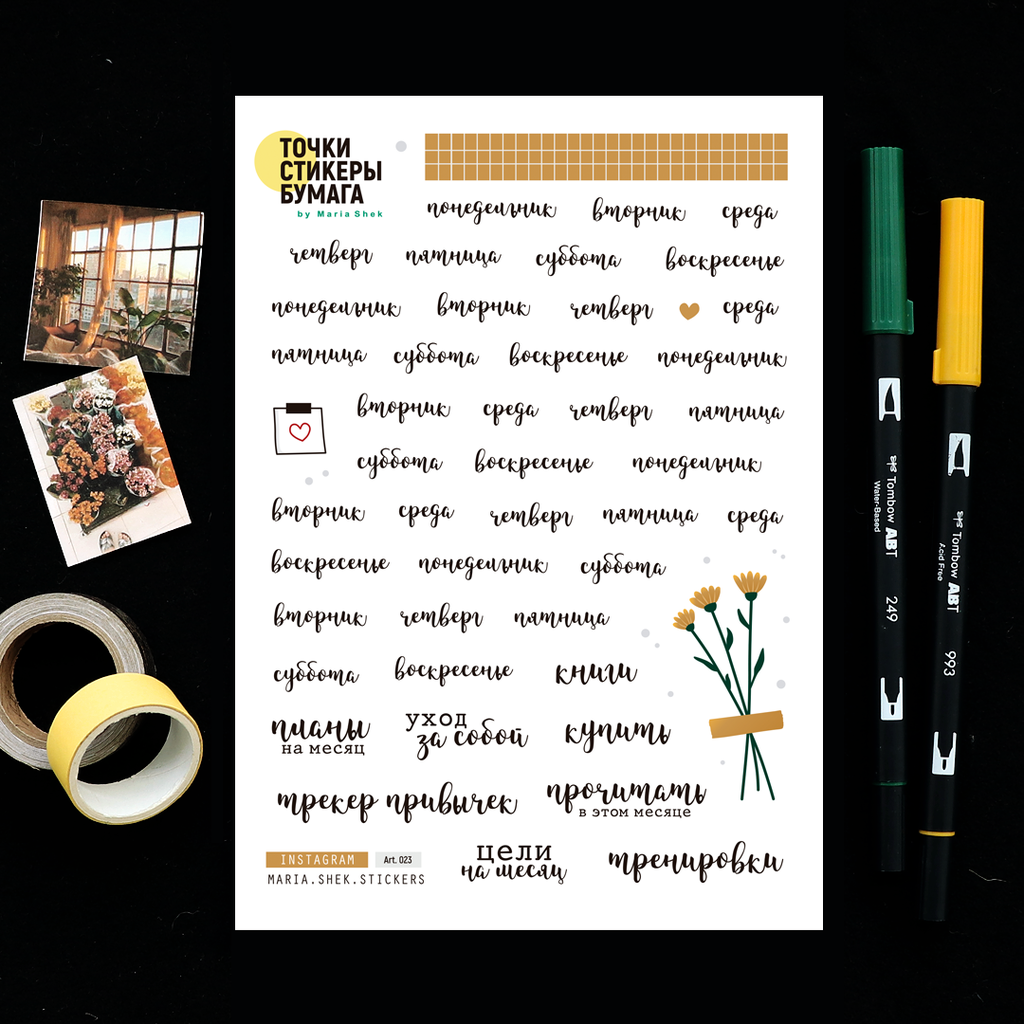 ТОЧКИ
СТИКЕРЫ
БУМАГА
by Maria Shek
понедельник вторник среда
четверг пятница суббота воскресенье
понедельник вторник четверг среда
пятница суббота воскресенье понедельник
вторник среда четверг пятница
суббота воскресенье понедельник
вторник среда четверг пятница среда
воскресенье понедельник суббота
вторник четверг пятница
суббота воскресенье книги
планы
на месяц
уход
за собой
купить
трекер привычек
прочитать
в этом месяце
INSTAGRAM
Art. 023
MARIA.SHEK.STICKERS
цели
на месяц
тренировки
Tombow ABT
Water-Based
249
Tombow ABT
Acid Free
993